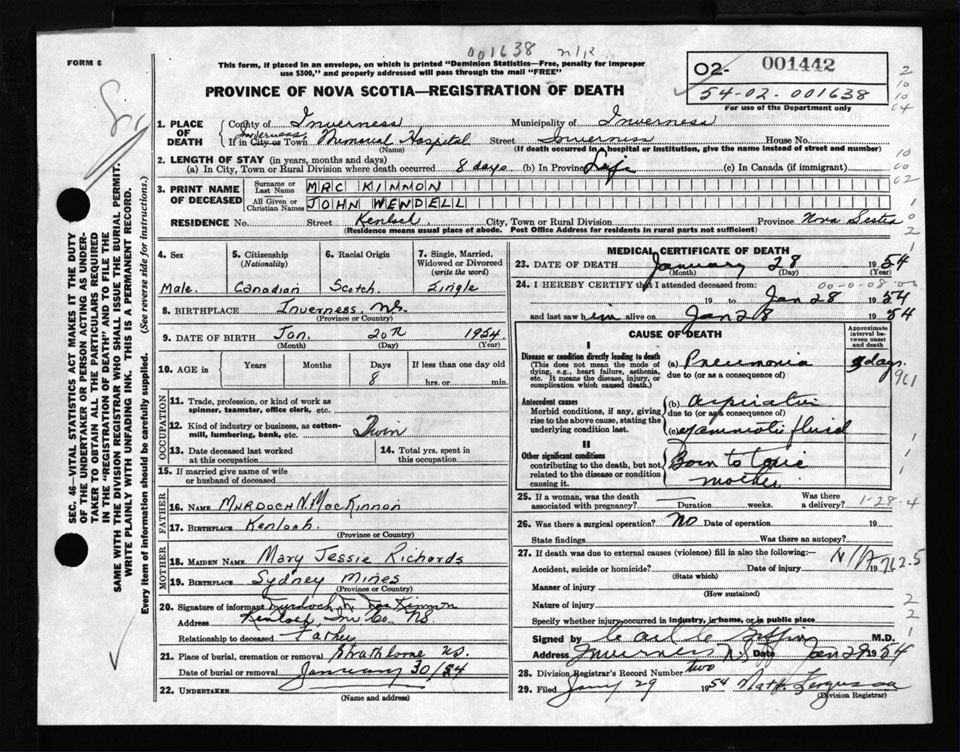 001638 n/R
FORM 6
This form, if placed in an envelope, on which is printed "Dominion Statistics—Free, penalty for improper
use $300," and properly addressed will pass through the mail "FREE"
02- 001442
54-02-001638
For use of the Department only
PROVINCE OF NOVA SCOTIA—REGISTRATION OF DEATH
1. PLACE OF DEATH
County of Inverness Municipality of Inverness
If in City or Town Inverness Memorial Hospital Street Inverness House No.
(Name) (If death occurred in hospital or institution, give the name instead of street and number)
2. LENGTH OF STAY (in years, months and days)
(a) In City, Town or Rural Division where death occurred 8 days (b) In Province Life (c) In Canada (if immigrant)
3. PRINT NAME OF DECEASED
Surname or Last Name MAC KINNON
All Given or Christian Names JOHN WENDELL
RESIDENCE No. Street Kenloch City, Town or Rural Division Province Nova Scotia
(Residence means usual place of abode. Post Office Address for residents in rural parts not sufficient)
4. Sex 5. Citizenship (Nationality) 6. Racial Origin 7. Single, Married, Widowed or Divorced (write the word)
Male. Canadian Scotch. Single
8. BIRTHPLACE Inverness, NS.
(Province or Country)
9. DATE OF BIRTH Jan. 20th 1954.
(Month) (Day) (Year)
10. AGE in Years Months Days If less than one day old
8 hrs. or min.
OCCUPATION
11. Trade, profession, or kind of work as
spinner, teamster, office clerk, etc.
12. Kind of industry or business, as cotton-
mill, lumbering, bank, etc. Twin
13. Date deceased last worked
at this occupation
14. Total yrs. spent in
this occupation
15. If married give name of wife
or husband of deceased
FATHER
16. NAME Murdoch N. MacKinnon
17. BIRTHPLACE Kenloch.
(Province or Country)
MOTHER
18. MAIDEN NAME Mary Jessie Richards
19. BIRTHPLACE Sydney Mines
(Province or Country)
20. Signature of informant Murdoch N. MacKinnon
Address Kenloch, Inv Co. NS.
Relationship to deceased Father
21. Place of burial, cremation or removal Strathlorne NS.
Date of burial or removal January 30/54
22. UNDERTAKER
(Name and address)
MEDICAL CERTIFICATE OF DEATH
23. DATE OF DEATH January 28 1954
(Month) (Day) (Year)
24. I HEREBY CERTIFY that I attended deceased from:
19 to Jan 28 1954
and last saw him alive on Jan 28 1954
CAUSE OF DEATH
Approximate interval between onset and death
I
Disease or condition directly leading to death
(This does not mean the mode of
dying, e.g., heart failure, asthenia,
etc. It means the disease, injury, or
complication which caused death.)
(a) Pneumonia days.
due to (or as a consequence of)
Antecedent causes
Morbid conditions, if any, giving
rise to the above cause, stating the
underlying condition last.
(b) aspiration
due to (or as a consequence of)
(c) of amniotic fluid
II
Other significant conditions
contributing to the death, but not
related to the disease or condition
causing it.
Born to toxic
mother
25. If a woman, was the death
associated with pregnancy? Duration weeks. Was there
a delivery?
1-28-4
26. Was there a surgical operation? No Date of operation 19
State findings Was there an autopsy?
27. If death was due to external causes (violence) fill in also the following:—
Accident, suicide or homicide? Date of injury N/A 19
(State which)
762.5
Manner of injury
(How sustained)
Nature of injury
Specify whether injury occurred in industry, in home, or in public place
Signed by M.D.
Address Inverness N.S. Date Jan 29 1954
28. Division Registrar's Record Number two
29. Filed Jany 29 1954 Nath. Ferguson
(Division Registrar)
SEC. 46—VITAL STATISTICS ACT MAKES IT THE DUTY
OF THE UNDERTAKER OR PERSON ACTING AS UNDER-
TAKER TO OBTAIN ALL THE PARTICULARS REQUIRED
IN THE "REGISTRATION OF DEATH" AND TO FILE THE
SAME WITH THE DIVISION REGISTRAR WHO SHALL ISSUE THE BURIAL PERMIT.
WRITE PLAINLY WITH UNFADING INK. THIS IS A PERMANENT RECORD.
Every item of information should be carefully supplied. (See reverse side for instructions.)